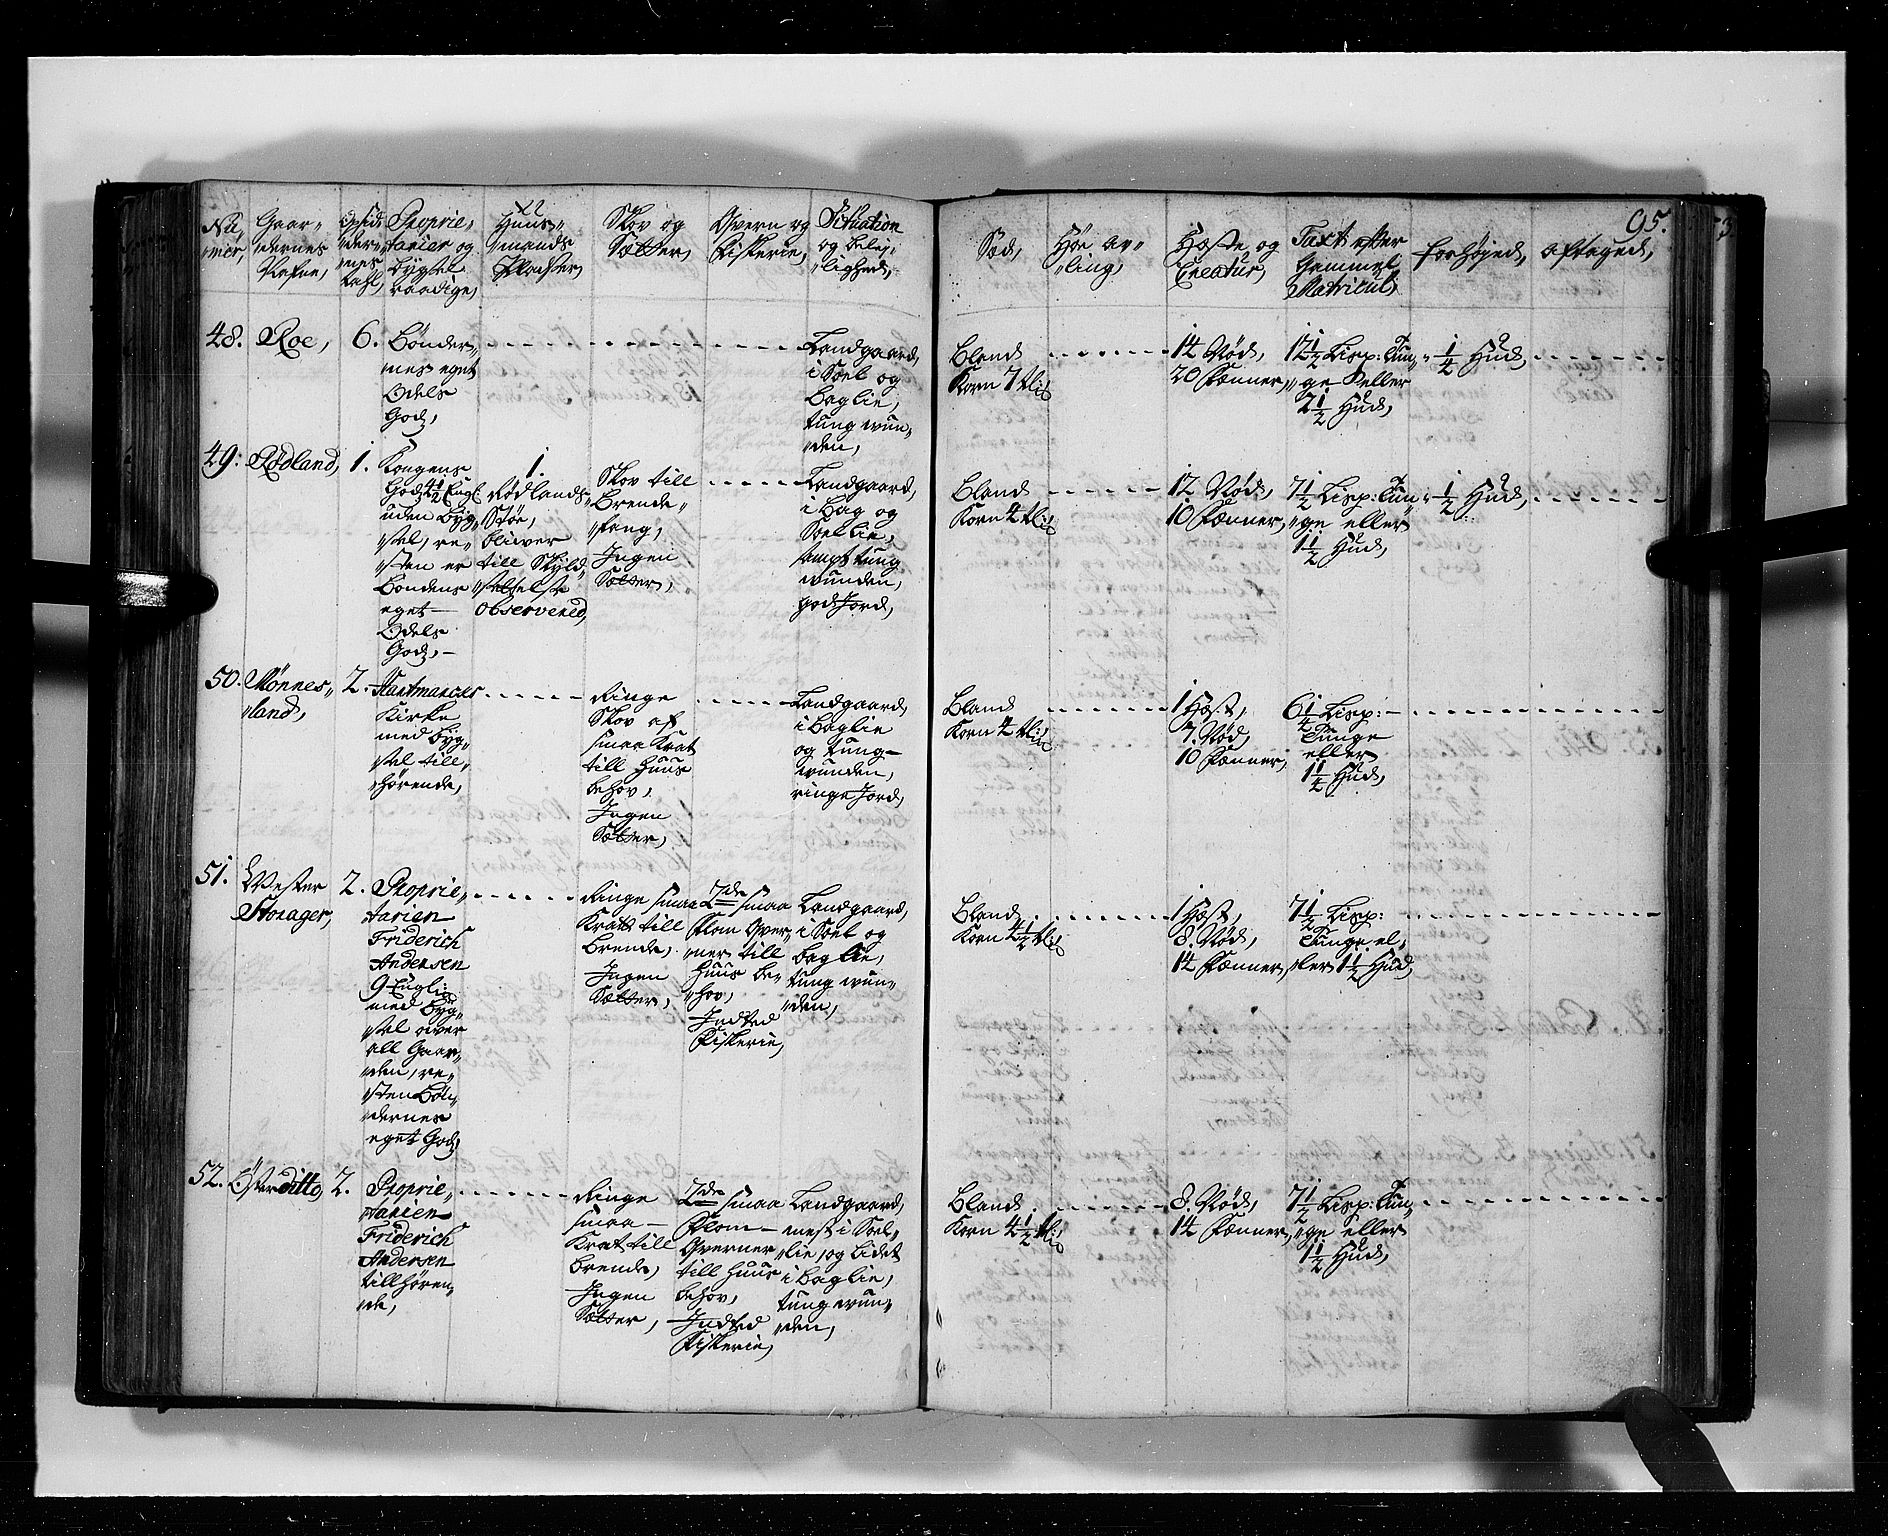 95.
Nu„
mer,
Gaar„
„dernes
Nafne,
Opsid„
„der„
„nes
tahl,
Proprie„
tarier og
bygsel
raadige,
Huus„
„mands
Pladser,
Skov og
Sætter,
Qvern og
Fiskerie,
Situation
og belej„
„lighed,
Sæd,
Høe av„
„ling,
Hæste og
Creatur,
Taxt efter
Gammel
Matricul,
forhøjed,
aftaged,
48. Roe, 6.
Bønder„
„nes eget
Odels
Godz,
Landgaard,
i Soel og
Baglie,
tung vun„
„den,
Bland
Korn 7 tl:
14 Nød,
20 Fænner,
12 1/2 Lisp: Tun„
„ge eller
2 1/2 Hud,
1/4 Hud,
49: Rødland, 1.
Kongens
Godz 4 1/2 Engl:
uden byg„
„sel, re„
„sten er
Bondens
eget
Odels
Godz,
1.
Rødlands„
Støe,
bliver
till Skyld„
„sættelse
observered,
Skov till
Brende„
„fang,
Ingen
Sætter,
Landgaard,
i bag og
Soellie,
sampt tung
vunden,
god Jord,
Bland
Korn 4 tl:
12 Nød,
10 Fænner,
7 1/2 Lisp: Tun„
„ge eller
1 1/2 Hud,
1/2 Hud,
50. Mønnes„
„land, 2.
Hartmarcks
Kirke
med byg„
„sel till„
„hørende,
Ringe
Skov af
smaa Krat
till Huus
behov,
Ingen
Sætter,
Landgaard,
i Baglie
og tung
vunden,
ringe Jord,
Bland
Korn 4 tl:
1 Hæst,
7. Nød,
10 Fænner,
6 1/4 Lisp:
Tunge
eller
1 1/4 Hud,
51. Wester
Storager, 2.
Proprie„
tarien
Friderich
Andersen
9 Engl:
med byg„
„sel over
all Gaar„
„den, re„
„sten Bøn„
„dernes
eget Godz,
Ringe smaa
Krat till
brende,
Ingen
Sætter,
2de smaa
Flom Qver„
„ner till
Huus be„
„hov,
Indted
Fiskerie,
Landgaard,
i Soel og
baglie,
tung vun„
„den,
Bland
Korn 4 1/2 tl:
1 Hæst,
8. Nød,
14 Fænner,
7 1/2 Lisp:
Tunge el„
„ler 1 1/2 Hud,
52. Øster ditto, 2.
Proprie„
„tarien
Friderich
Andersen
till hören„
„de,
Ringe
smaa
Krat till
brende,
Ingen
Sætter,
2de smaa
Flom
Qverner
till Huus
behov,
Indted
Fiskerie,
Landgaard,
mest i Soel„
„lie, og lidet
i baglie,
tung vun„
„den,
Bland
Korn 4 1/2 tl:
8. Nød,
14 Fænner,
7 1/2 Lisp: Tun„
„ge eller
1 1/2 Hud,